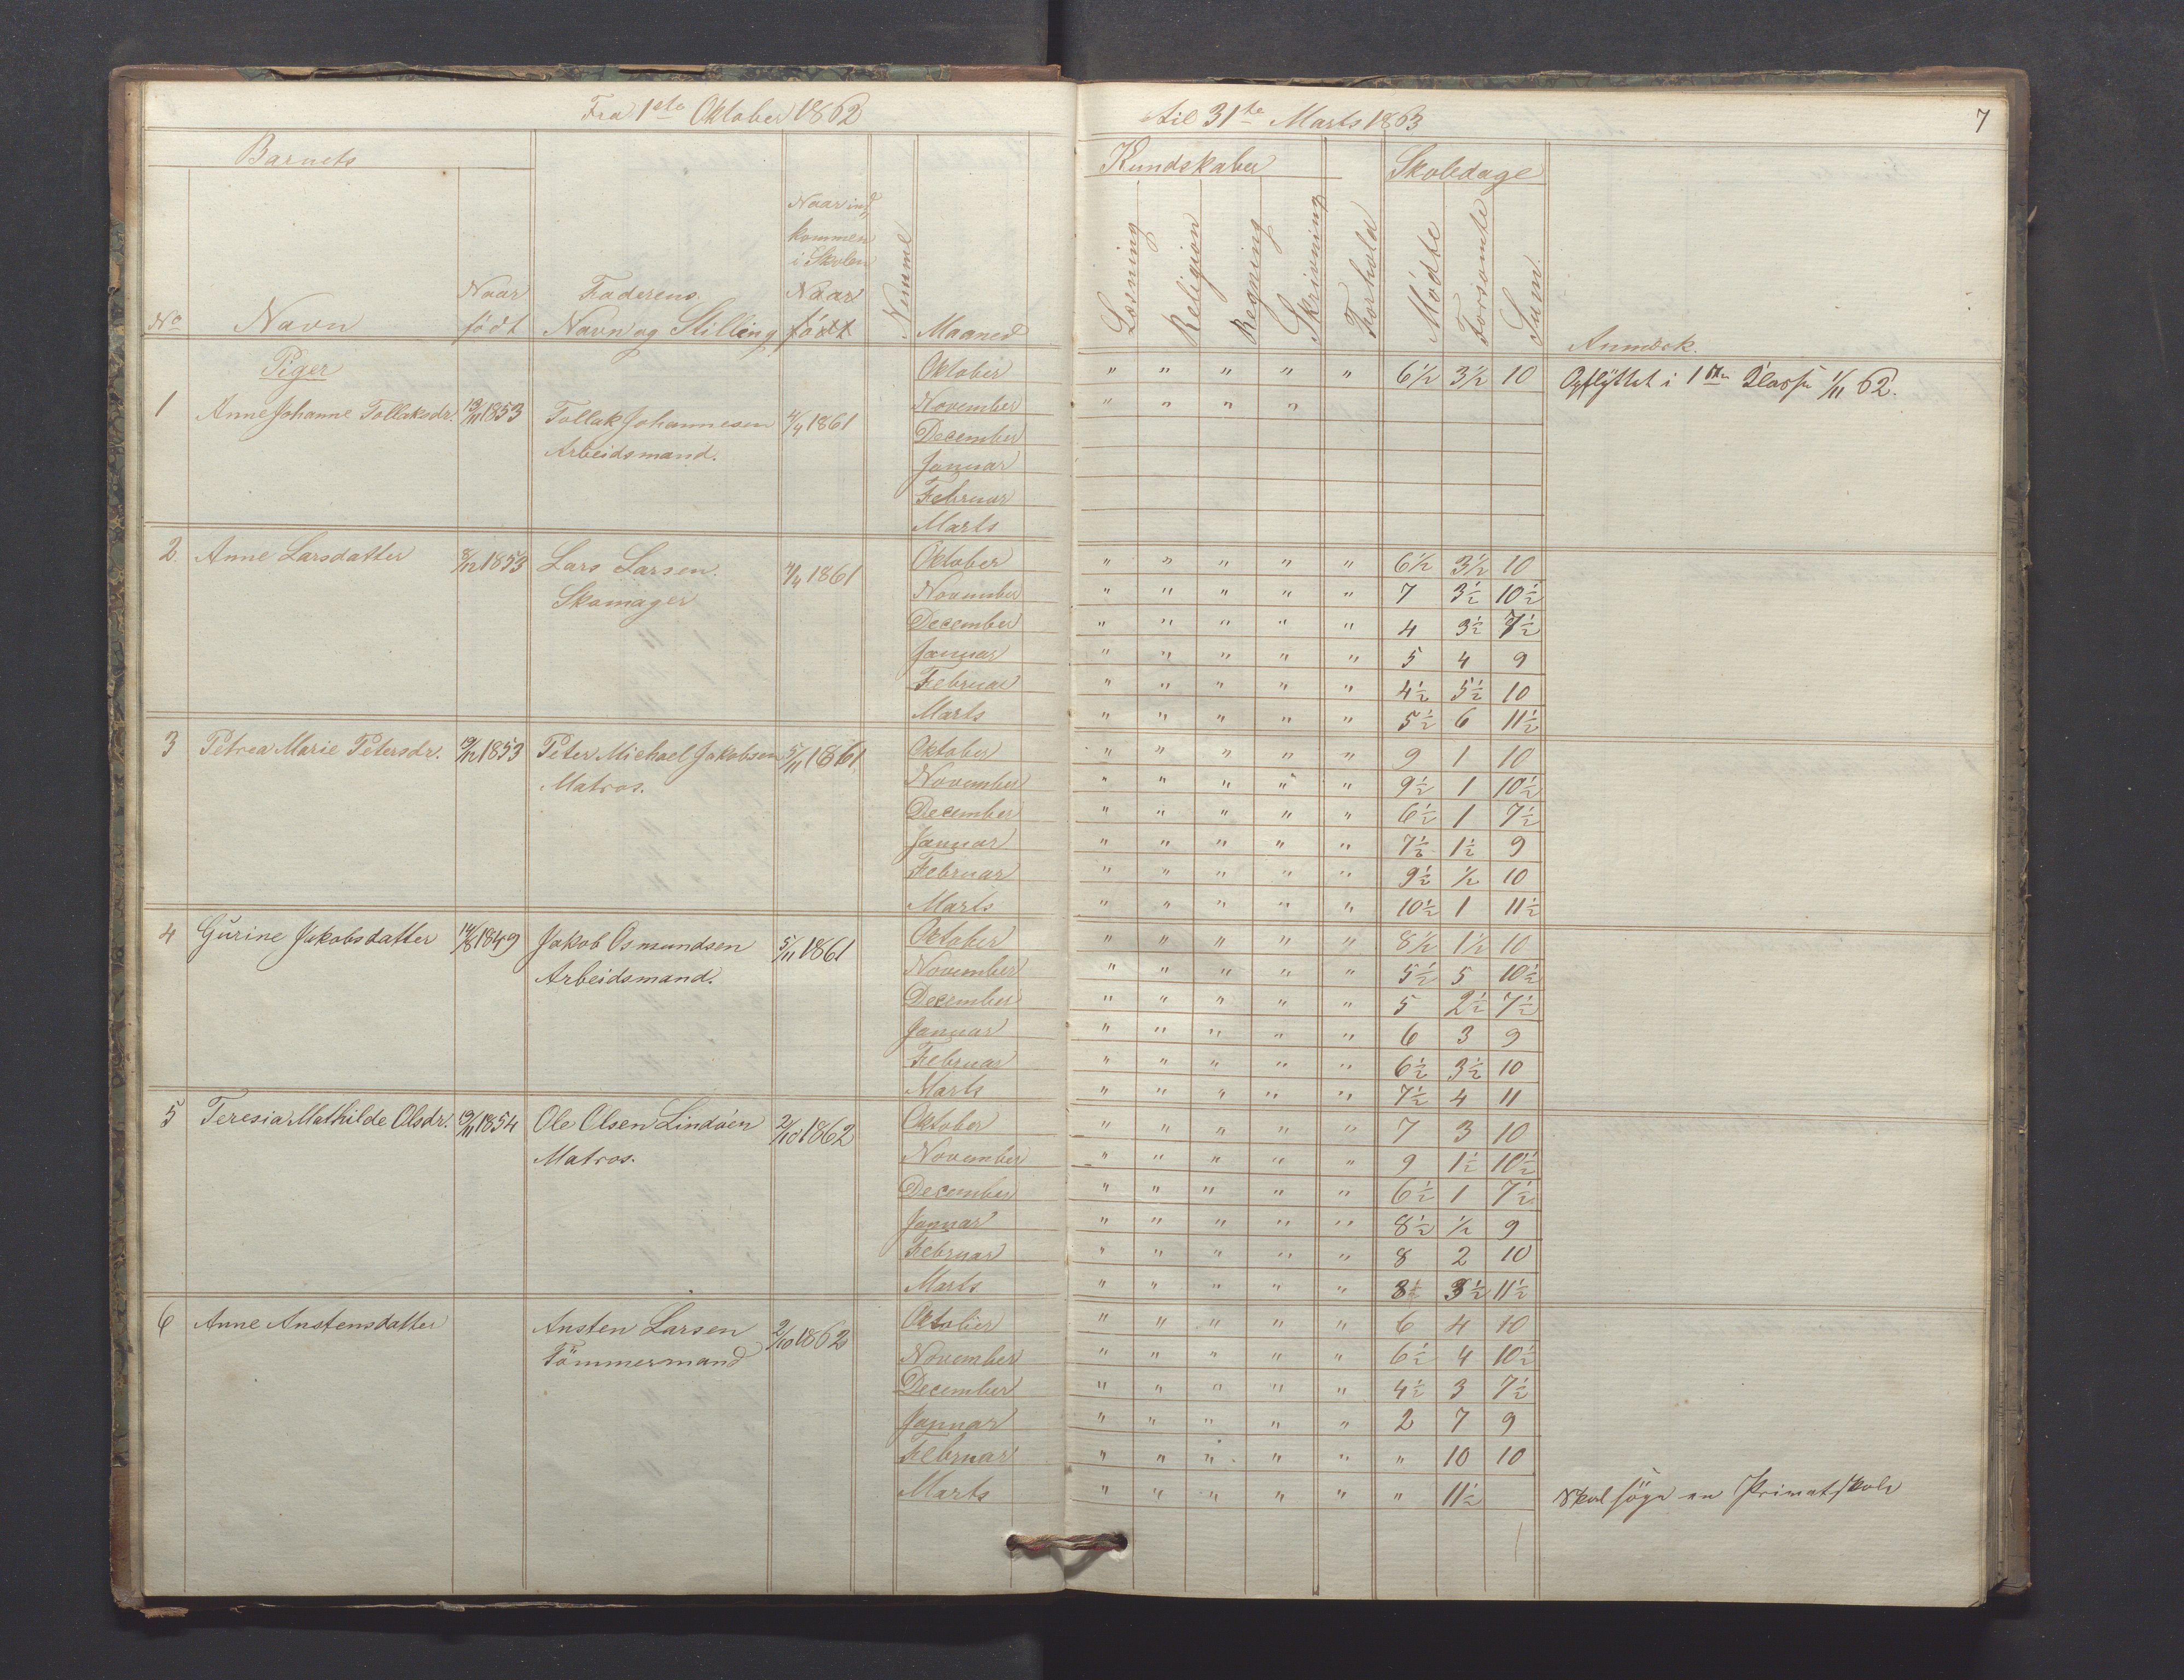 Fra 1ste Oktober 1862 til 31te Marts 1863 7
Barnets Kundskaber Skoledage
No Navn Naar født Faderens Navn og Stilling Naar indkommen i Skolen Naar født Nemme Maaned Læsning Religion Regning Skrivning Forhold Mødte Forsømte Sum. Anmærk.
Piger
1 Anne Johanne Tollaksdr. 13/11 1853 Tollak Johannesen 4/4 1861
Arbeidsmand.
Oktober " " " " " 6½ 3½ 10 Opflyttet i 1ste Klasse 1/11 62.
November " " " "
December
Januar
Februar
Marts
2. Anne Larsdatter 8/12 1853 Lars Larsen. 4/4 1861
Skomager
Oktober " " " " " 6½ 3½ 10
November " " " " " 7 3½ 10½
December " " " " " 4 3½ 7½
Januar " " " " " 5 4 9
Februar " " " " " 4½ 5½ 10
Marts " " " " " 5½ 6 11½
3 Petrea Marie Petersdr. 19/12 1853 Peter Michael Jakobsen 5/11 1861.
Matros.
Oktober " " " " " 9 1 10
November " " " " " 9½ 1 10½
December " " " " " 6½ 1 7½
Januar " " " " " 7½ 1½ 9
Februar " " " " " 9½ ½ 10
Marts " " " " " 10½ 1 11½
4 Gurine Jakobsdatter 14/8 1849 Jakob Osmundsen 5/11 1861
Arbeidsmand.
Oktober " " " " " 8½ 1½ 10
November " " " " " 5½ 5 10½
December " " " " " 5 2½ 7½
Januar " " " " " 6 3 9
Februar " " " " " 6½ 3½ 10
Marts " " " " " 7½ 4 11
5 Teresia Mathilde Olsdr. 19/11 1854 Ole Olsen Lindøen 2/10 1862
Matros.
Oktober " " " " " 7 3 10
November " " " " " 9 1½ 10½
December " " " " " 6½ 1 7½
Januar " " " " " 8½ ½ 9
Februar " " " " " 8 2 10
Marts " " " " " 8 3½ 11½
6 Anne Anstensdatter Ansten Larsen 2/10 1862
Tömmermand
Oktober " " " " " 6 4 10
November " " " " " 6½ 4 10½
December " " " " " 4½ 3 7½
Januar " " " " " 2 7 9
Februar " " " " " " 10 10
Marts " " " " " " 11½ Skal søge en Privatskole